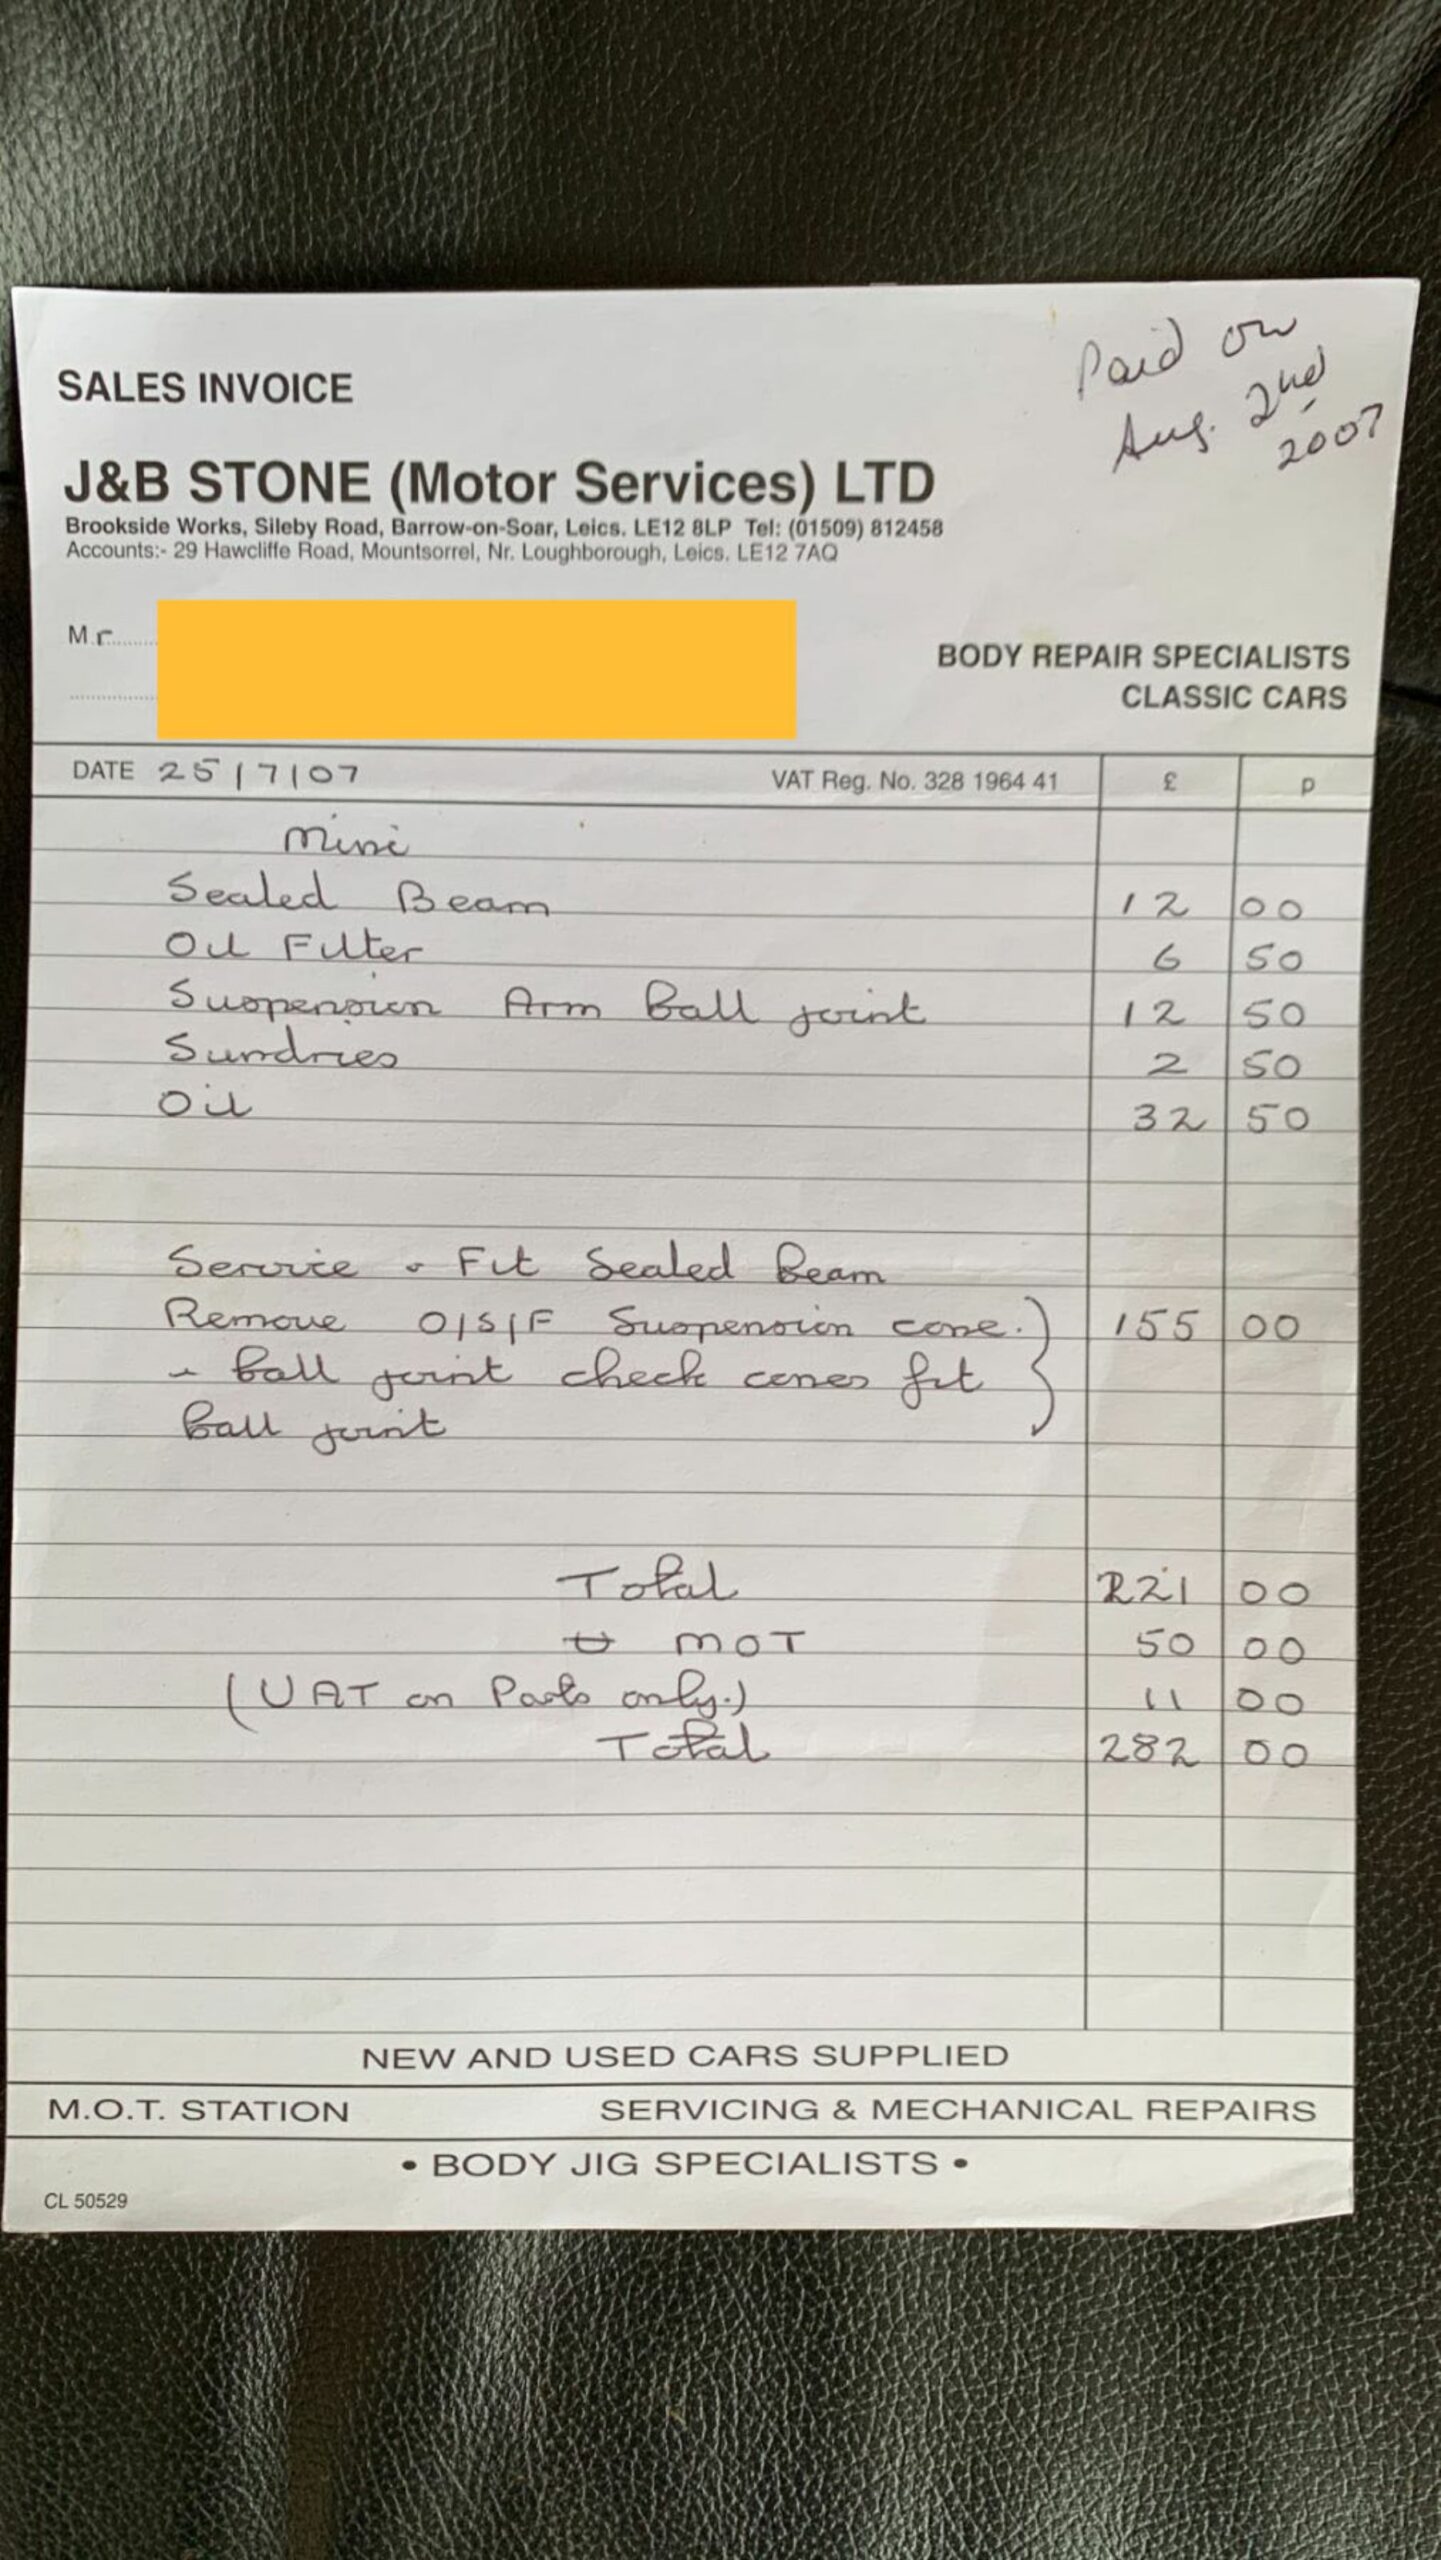 Paid on
Aug. 2nd
2007
SALES INVOICE
J&B STONE (Motor Services) LTD
Brookside Works, Sileby Road, Barrow-on-Soar, Leics. LE12 8LP Tel: (01509) 812458
Accounts:- 29 Hawcliffe Road, Mountsorrel, Nr. Loughborough, Leics. LE12 7AQ
Mr
BODY REPAIR SPECIALISTS
CLASSIC CARS
DATE 25/7/07 VAT Reg. No. 328 1964 41 £ p
Mini
Sealed Beam 12 00
Oil Filter 6 50
Suspension Arm Ball joint 12 50
Sundries 2 50
Oil 32 50
Service + Fit Sealed Beam
Remove O/S/F Suspension cone. 155 00
+ Ball joint check cones fit
Ball joint
Total 221 00
MOT 50 00
(VAT on Parts only.) 11 00
Total 282 00
NEW AND USED CARS SUPPLIED
M.O.T. STATION SERVICING & MECHANICAL REPAIRS
• BODY JIG SPECIALISTS •
CL 50529